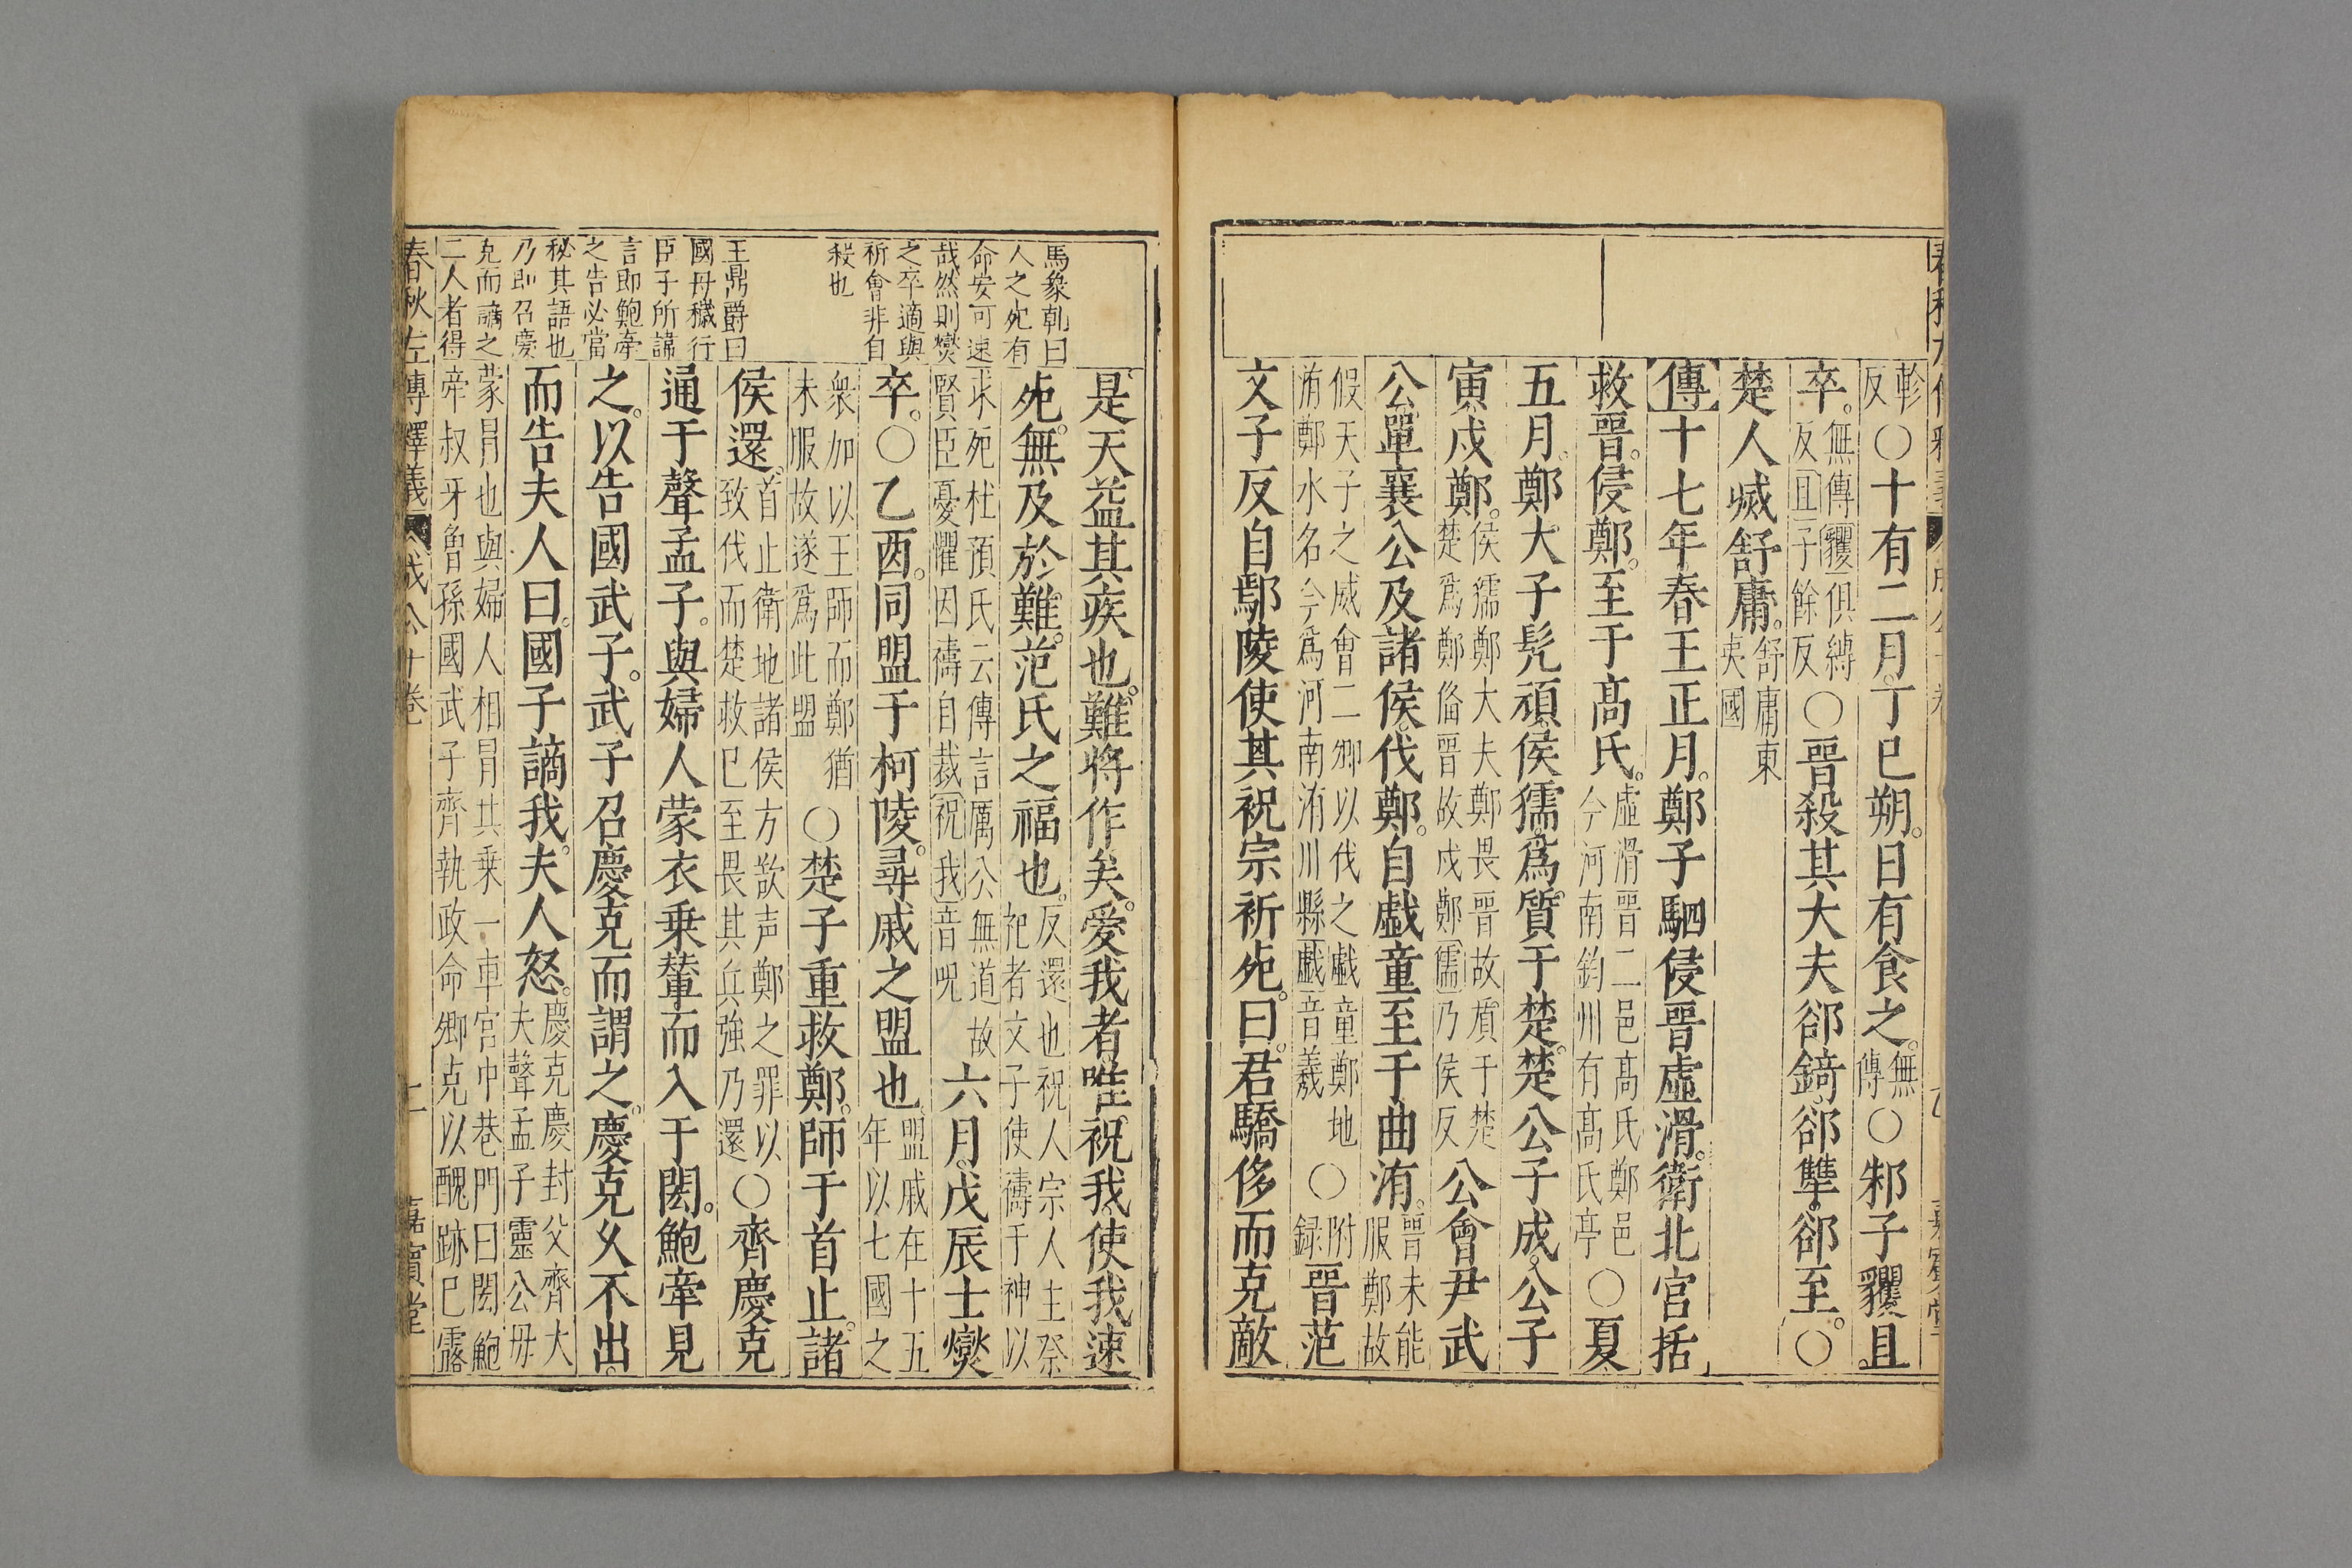 軫反○十有二月丁巳朔。日有食之。無傳○邾子貜且
卒。無傳貜俱縛反且子餘反○晉殺其大夫郤錡郤犨郤至。○
楚人滅舒庸。舒庸東夷國
傳十七年春王正月。鄭子駟侵晉虛滑。衛北宮括
救晉。侵鄭。至于高氏。虛滑晉二邑高氏鄭邑今河南鈞州有高氏亭○夏
五月。鄭大子髠頑。侯獳。爲質于楚。楚公子成。公子
寅戍鄭。侯獳鄭大夫鄭畏晉故質于楚楚爲鄭俻晉故戍鄭獳乃侯反公會尹武
公單襄公及諸侯。伐鄭。自戲童至于曲洧。晉未能服鄭故
假天子之威會二卿以伐之戲童鄭地洧鄭水名今爲河南洧川縣戲音羲○附録晉范
文子反自鄢陵使其祝宗祈死。曰。君驕侈而克敵
是天益其疾也。難將作矣。愛我者唯祝我使我速
死。無及於難。范氏之福也。反還也祝人宗人主祭祀者文子使禱于神以
求死杜預氏云傳言厲公無道故賢臣憂懼因禱自裁祝我音呪六月。戊辰士燮
卒。○乙酉。同盟于柯陵。尋戚之盟也盟戚在十五年以七國之
衆加以王師而鄭猶未服故遂爲此盟○楚子重救鄭。師于首止。諸
侯還。首止衛地諸侯方欲声鄭之罪以致伐而楚救已至畏其兵強乃還○齊慶克
通于聲孟子。與婦人蒙衣乗輦而入于閎。鮑牽見
之。以告國武子。武子召慶克而謂之。慶克久不出。
而告夫人曰。國子謫我。夫人怒。慶克慶封父齊大夫聲孟子靈公母
蒙冒也與婦人相冒共乗一車宮中巷門曰閎鮑牽叔牙曽孫國武子齊執政命卿克以醜跡已露
馬象乹曰
人之死有
命安可速
哉然則燮
之卒適與
祈會非自
殺也
王鼎爵曰
國母穢行
臣子所諱
言即鮑牽
之告必當
秘其語也
乃即召慶
克而謫之
二人者得
春秋左傳釋義 成公十卷 嘉賓堂